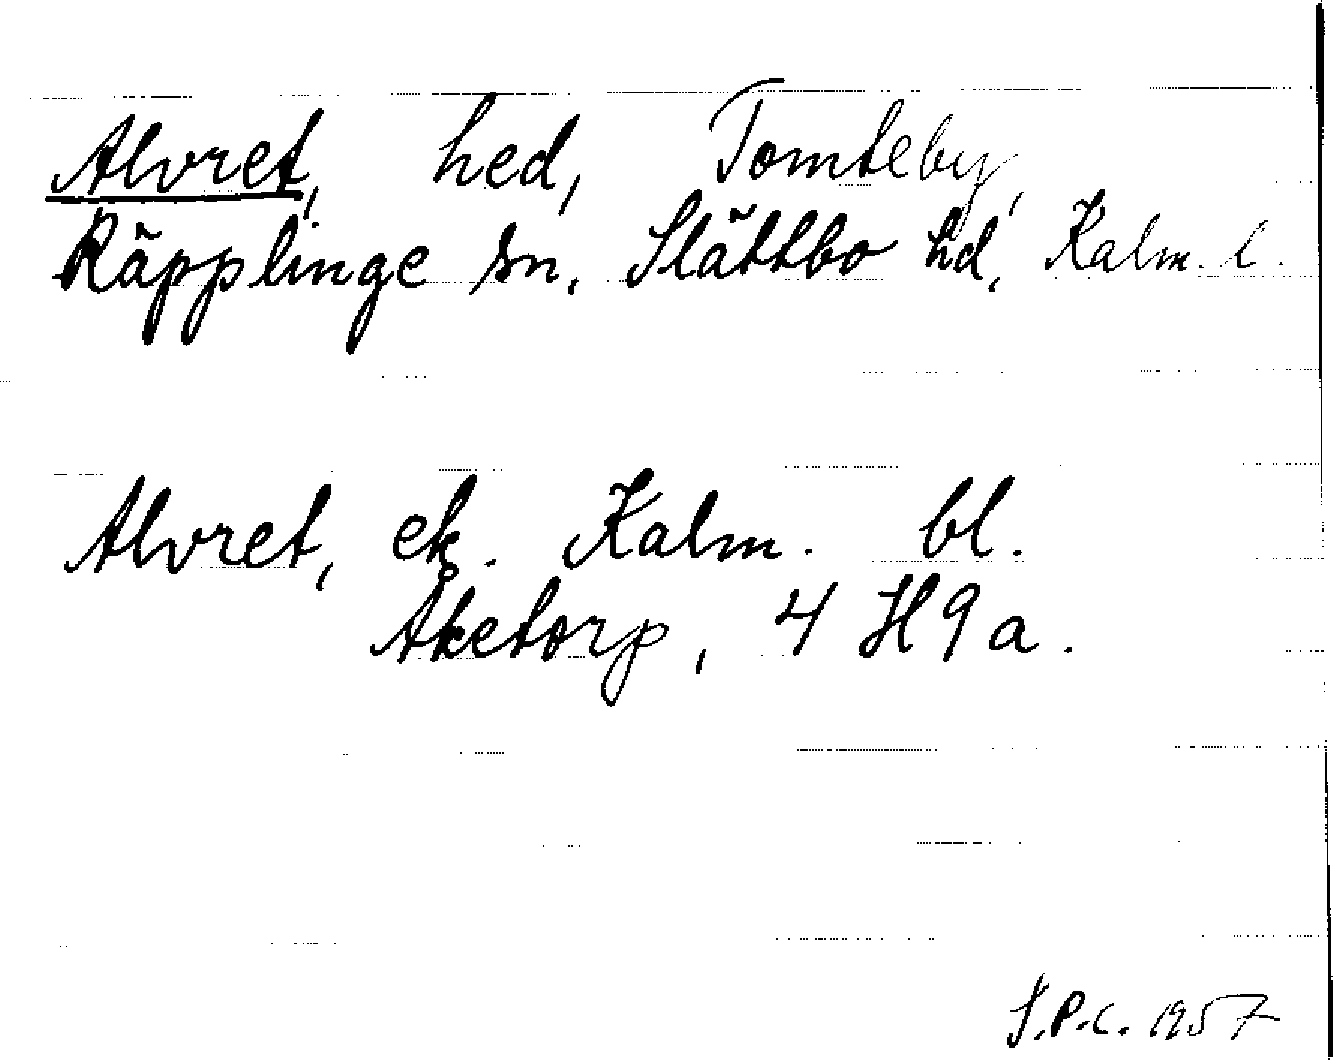 Alvret, hed, Tomteby,
Räpplinge sn. Slättbo hd, Kalm. l.
Alvret, ek. Kalm. bl.
Åketorp, 4 H 9 a.
S.P.C. 1957